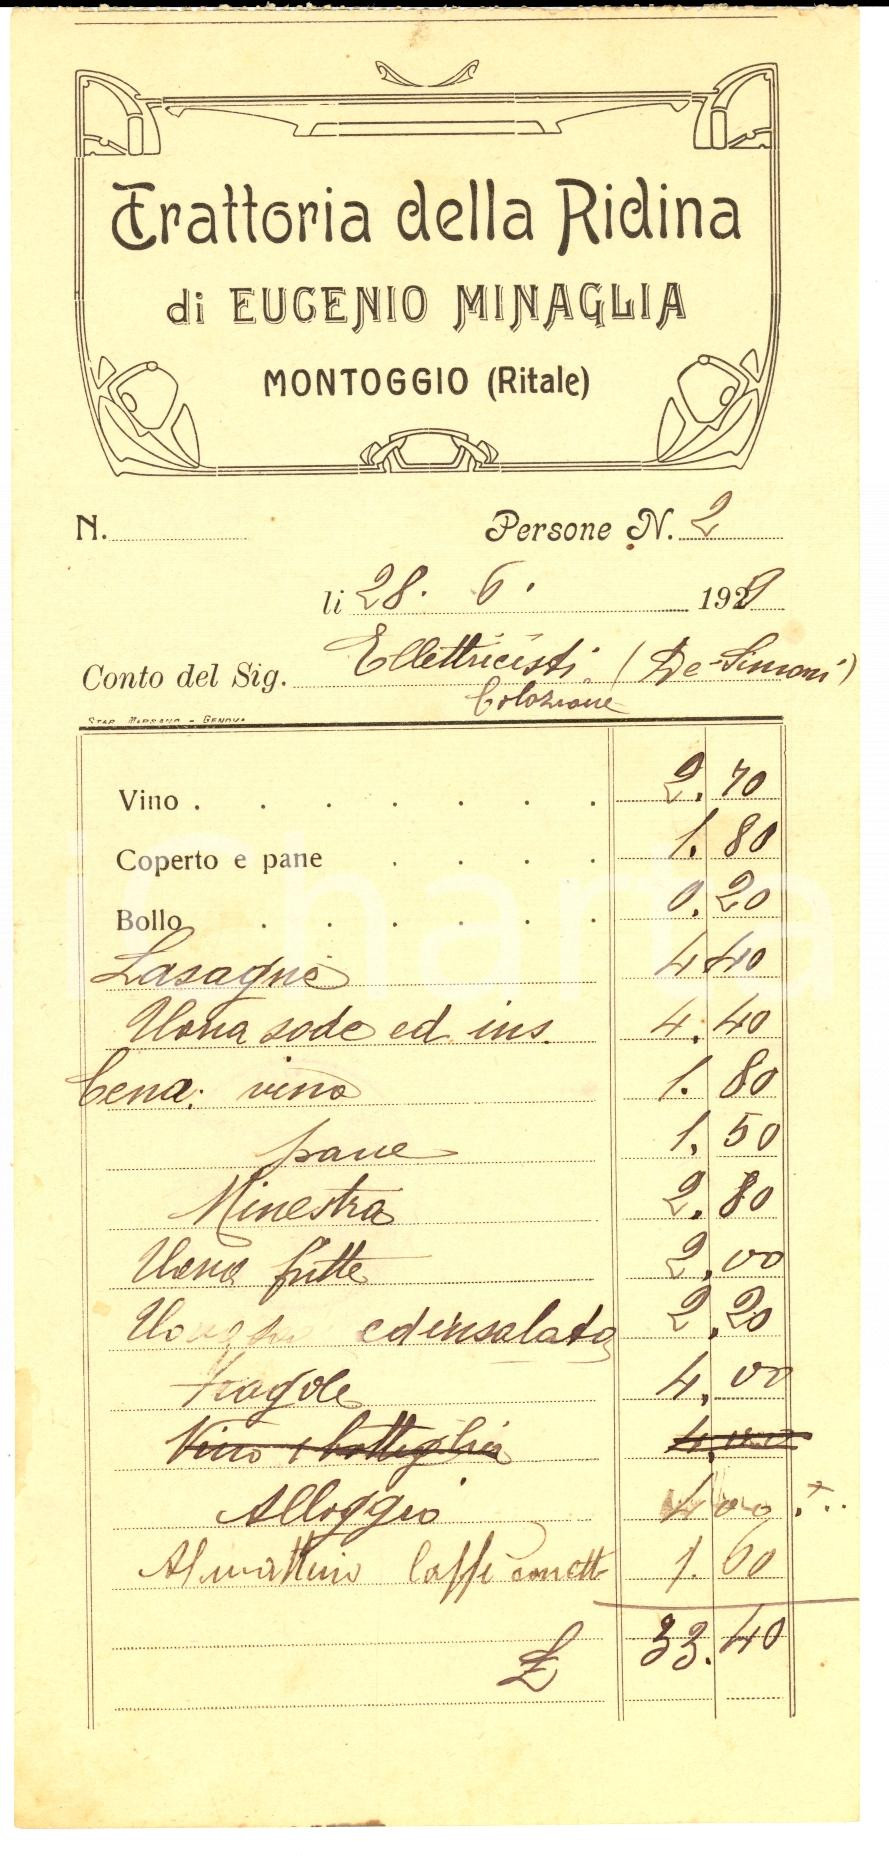 Trattoria della Ridina
di EUGENIO MINAGLIA
MONTOGGIO (Ritale)
N. Persone N. 2
li 28. 6. 1929
Conto del Sig. Ellettricisti (De-Simoni)
Colazione
STAB. MARSANO - GENOVA
Vino . . . . . . . 2.70
Coperto e pane . . . . 1.80
Bollo . . . . . . 0.20
Lasagne 4.40
Uova sode ed ins. 4.40
Cena: vino 1.80
pane 1.50
Minestra 2.80
Uova fritte 2.00
ed insalata 2.20
Fragole 4.00
Vino 1 bottiglia 4.00
Alloggio 4 00
Al mattino Caffe 1.60
£ 33.40
iCharta